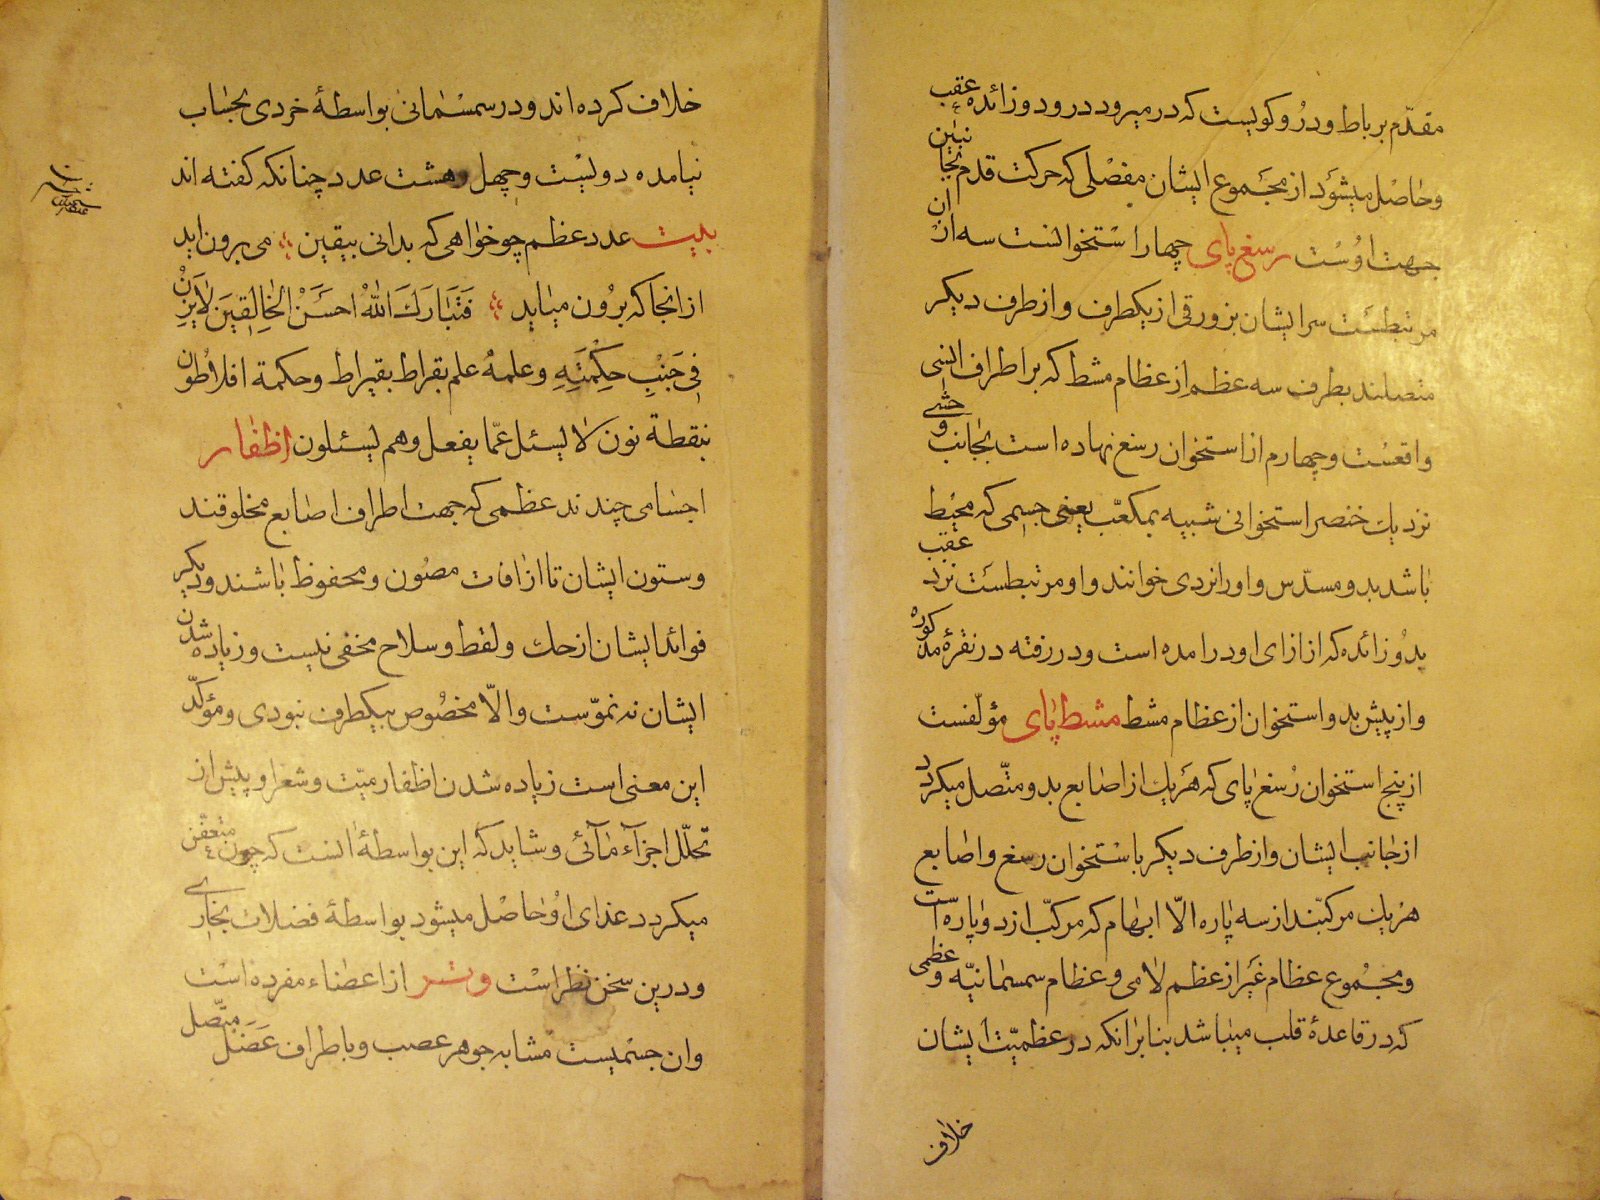 مقدّم برباط و درُو کویست که در میرود درو دو زائده عقب
وحاصل میشود از مجموع ایشان مفصلی که حرکت قدم بجانبین
جهت اوُست رسغ پای چهار استخوانست سه ازان
مرتبطست سر ایشان بزورقی از یکطرف و از طرف دیکر
متصلند بطرف سه عظم از عظام مشط که بر اطراف انسی
واقعست و چهارم از استخوان رسغ نهاده است بجانب وحشی
نزدیك خنصر استخوانی شبیه بمکعّب یعنی جسمی که محیط
باشد بدو مسدّس و او را نردی خوانند و او مرتبطست نزد عقب
بدُو زائده که از ازای او درامده است و در رفته در نقرهٔ مذکوره
و از پیش بدو استخوان از عظام مشط مشط پای مؤلّفست
از پنج استخوان رُسغ پای که هریك از اصابع بدو متّصل میکردد
از جانب ایشان و از طرف دیکر با ستخوان رسغ و اصابع
هریك مرکبّند از سه پاره الّا ابهام که مرکبّ از دو پاره است
ومجُموع عظام غیر از عظم لامی و عظام سمسمانیّه و عظمی
که در قاعدهٔ قلب میباشد بنا برانکه در عظمیّت ایشان
خلاف
خلاف کرده اند و در سمسمانی بواسطهٔ خردی بحساب
نیامده دویست و چهل و هشت عدد چنانکه کفته اند
بیت عدد عظم چو خواهی که بدانی بیقین می برون اید
از انجا که برُون میاید فَتَبَارَكَ اللهُ احسَنُ الخَالِقینَ لایزن
فِی جَنبِ حِکمَتِهِ وعلمهُ علم بقراط بقیراط وحکمة افلاطون
بنقطة نون لا یسئل عمّا یفعل وهم یسئلون اظفار
اجسامی چندند عظمی که جهت اطراف اصابع مخلوقند
وستون ایشان تا از افات مصُون ومحفوظ باشند ودیکر
فوائد ایشان از حك ولقط وسلاح مخفی نیست وزیاده شدن
ایشان نه نموّست والّا مخصُوص بیکطرف نبودی ومؤکّد
این معنی است زیاده شدن اظفار میّت وشعر او پیش از
تحلّل اجزآء مائی وشاید که این بواسطهٔ انست که چون متعفّن
میکردد غذای اوُ حاصل میشود بواسطهٔ فضلات بخاری
و درین سخن نظر است وتر از اعضاء مفرده است
وان جسمیست مشابه جوهر عصب وباطراف عَضَل متّصل